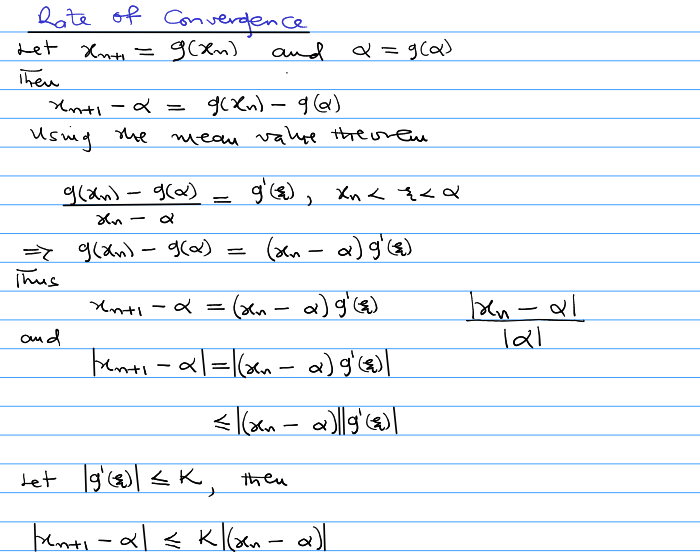 Rate of Convergence
Let xₙ₊₁ = g(xₙ) and α = g(α)
Then
xₙ₊₁ − α = g(xₙ) − g(α)
Using the mean value theorem
(g(xₙ) − g(α)) / (xₙ − α) = g'(ξ), xₙ < ξ < α
⇒ g(xₙ) − g(α) = (xₙ − α) g'(ξ)
Thus
xₙ₊₁ − α = (xₙ − α) g'(ξ) |xₙ − α| / |α|
and
|xₙ₊₁ − α| = |(xₙ − α) g'(ξ)|
≤ |(xₙ − α)||g'(ξ)|
Let |g'(ξ)| ≤ K, then
|xₙ₊₁ − α| ≤ K|(xₙ − α)|